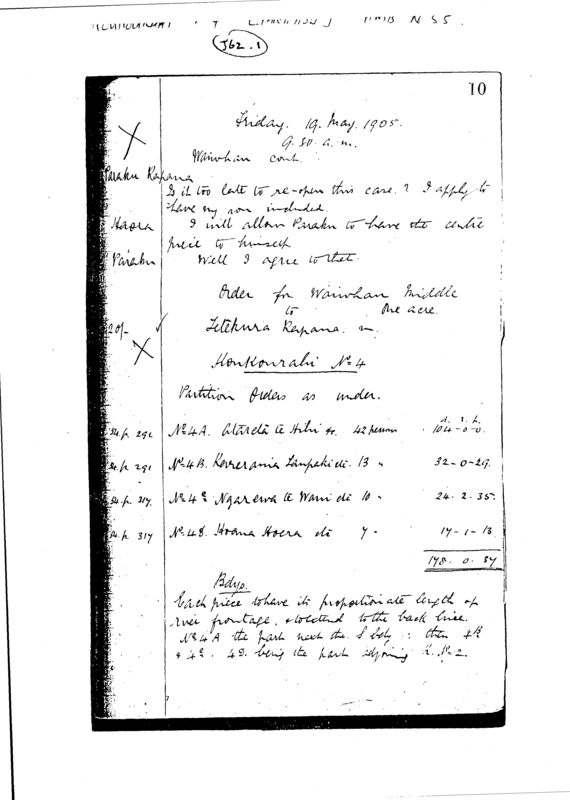 N 55.
J62.1
10
Friday. 19. May. 1905.
9.30 a.m.
cont.
Paraku Kapana
Is it too late to re-open this case? I apply to
have my son included.
Haora I will allow Paraku to have the centre
piece to himself
Paraku Well I agree to that.
Order for Waiwhau Middle
to One acre.
20/- Kapana. m.
Houkourahi No 4
Partition Orders as under.
a. r. p.
291 No 4A. te Hihi 42 persons 104-0-0.
291 No 4B. 13 " 32-0-29.
317. No 4C Ngarewa te etc 10 " 24.2.35.
317 No 4D. Hoana Hoera etc 7 " 17-1-13
178. 0. 37
Bdys.
Each piece to have its proportionate length of
river frontage, & to extend to the back line.
No 4A the part next the S bdy; then 4B
& 4C. 4D. being the part adjoining No 2.